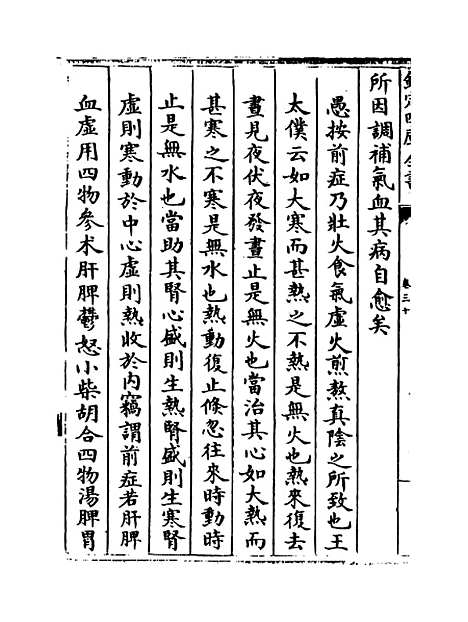 欽定四庫全書
卷三十
所因調補氣血其病自愈矣
愚按前症乃壯火食氣虛火煎熬真陰之所致也王
太僕云如大寒而甚熱之不熱是無火也熱來復去
晝見夜伏夜發晝止是無火也當治其心如大熱而
甚寒之不寒是無水也熱動復止倏忽往來時動時
止是無水也當助其腎心盛則生熱腎盛則生寒腎
虛則寒動於中心虛則熱收於內竊謂前症若肝脾
血虛用四物參术肝脾鬱怒小柴胡合四物湯脾胃